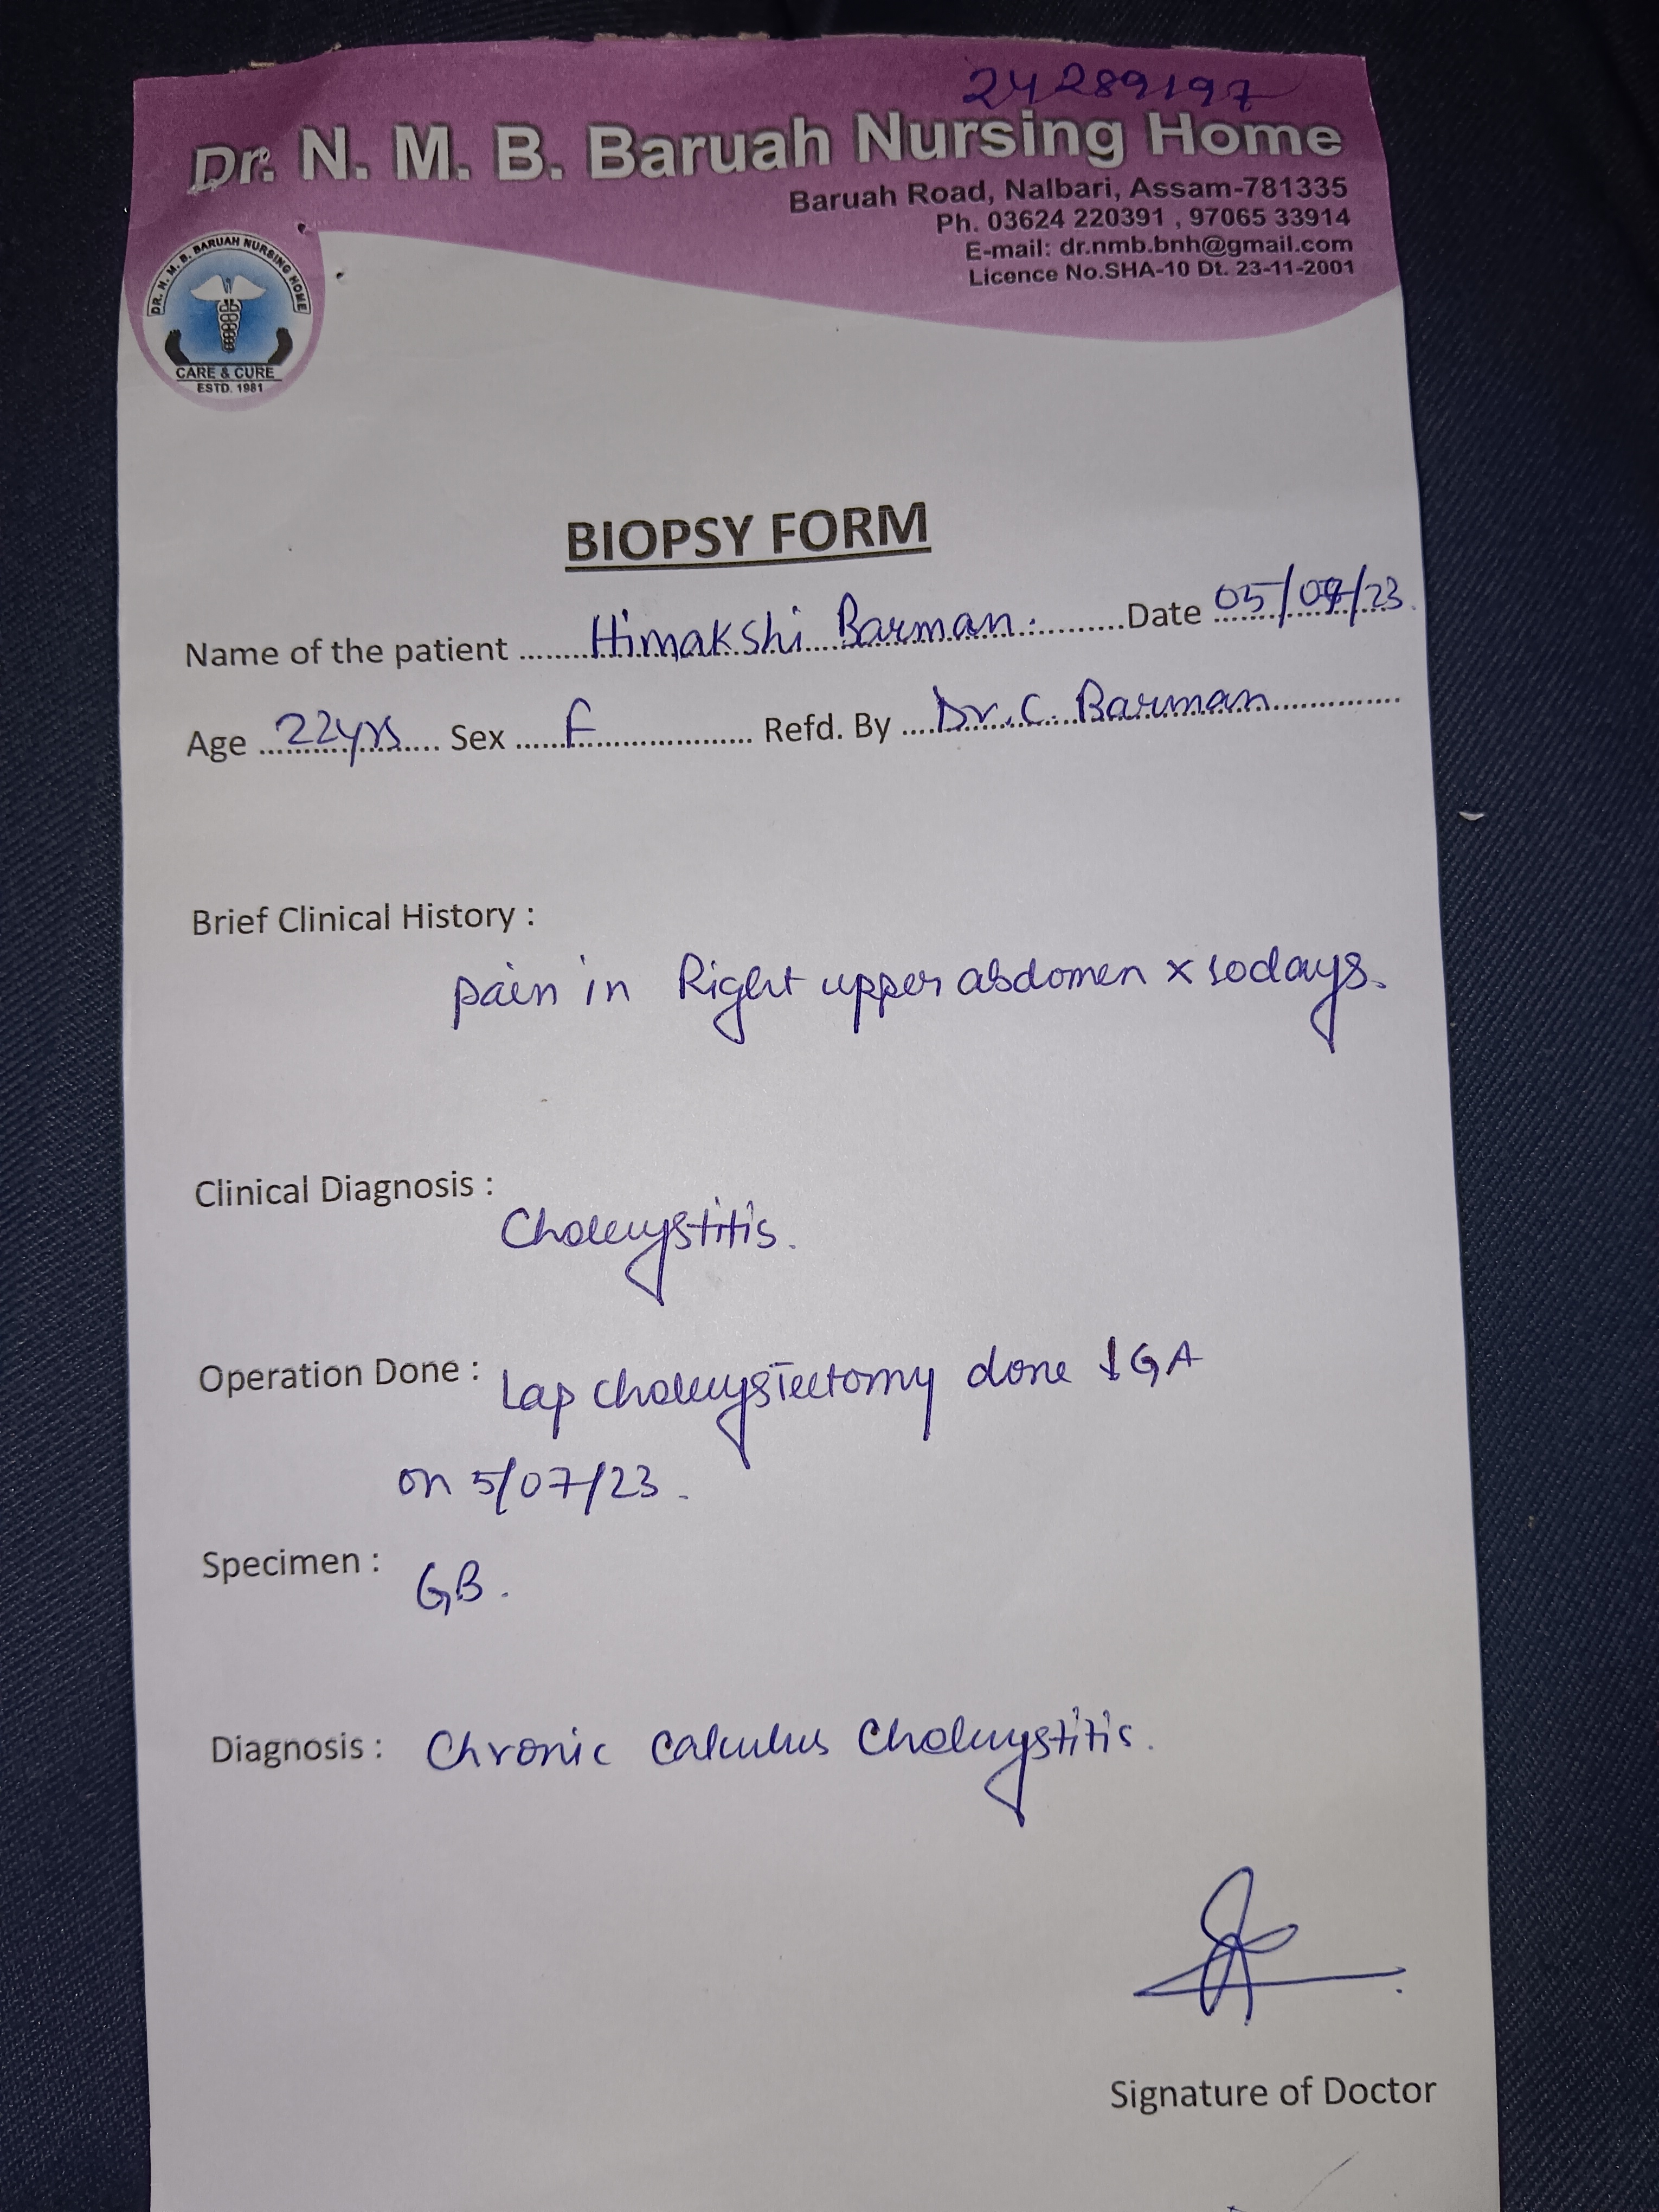 24289197
Dr. N. M. B. Baruah Nursing Home
Baruah Road, Nalbari, Assam-781335
Ph. 03624 220391 , 97065 33914
E-mail: dr.nmb.bnh@gmail.com
Licence No.SHA-10 Dt. 23-11-2001
DR. N. M. B. BARUAH NURSING HOME
CARE & CURE
ESTD. 1981
BIOPSY FORM
Name of the patient ........Himakshi Barman...........Date 05/07/23
Age 22yrs Sex F Refd. By Dr. C. Barman
Brief Clinical History :
pain in Right upper abdomen x 10days.
Clinical Diagnosis :
Cholecystitis.
Operation Done : Lap cholecystectomy done ↓ GA
on 5/07/23.
Specimen :
GB.
Diagnosis : Chronic calculus Cholecystitis.
Signature of Doctor